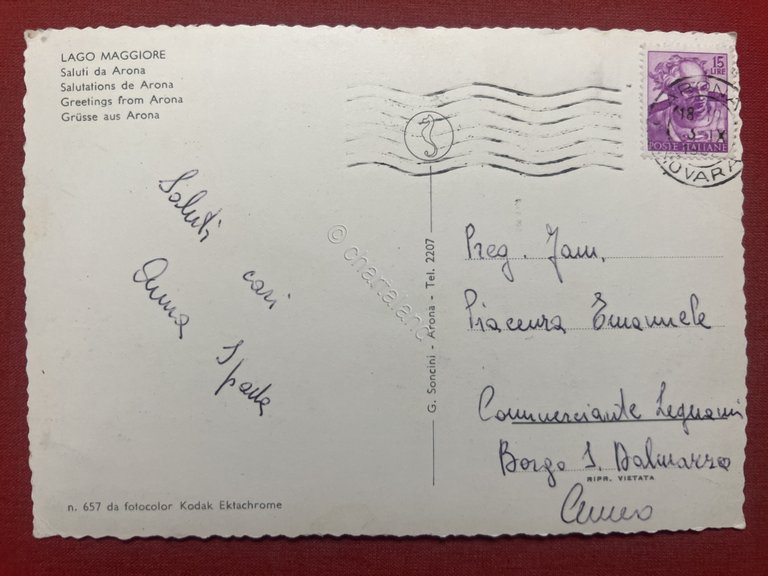 LAGO MAGGIORE
Saluti da Arona
Salutations de Arona
Greetings from Arona
Grüsse aus Arona
15
LIRE
POSTE ITALIANE
ARONA
18
NOVARA
Saluti cari
Anna Spada
G. Soncini - Arona - Tel. 2207
Preg. Fam.
Piacenza Emanuele
Commerciante Legnami
Borgo S. Dalmazzo
RIPR. VIETATA
Cuneo
n. 657 da fotocolor Kodak Ektachrome